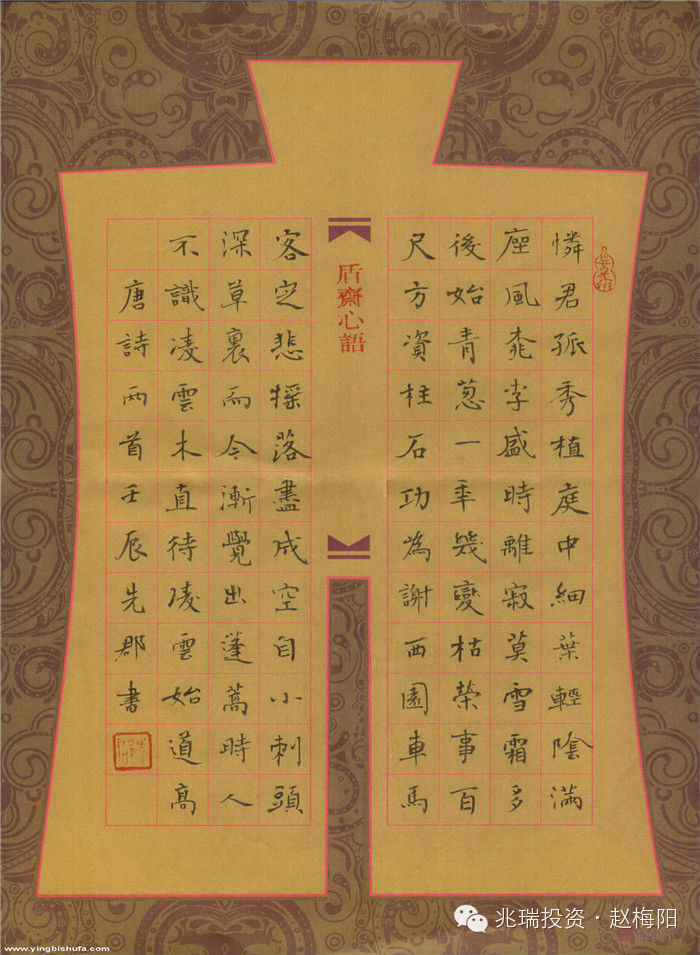 憐君孤秀植庭中細葉輕陰滿
座風桃李盛時離寂莫雪霜多
後始青葱一年幾變枯榮事百
尺方資柱石功為謝西園車馬
盾齋心語
客定悲搖落盡成空自小刺頭
深草裏而今漸覺出蓬蒿時人
不識凌雲木直待凌雲始道高
唐詩兩首壬辰先郡書
兆瑞投资·赵梅阳
www.yingbishufa.com